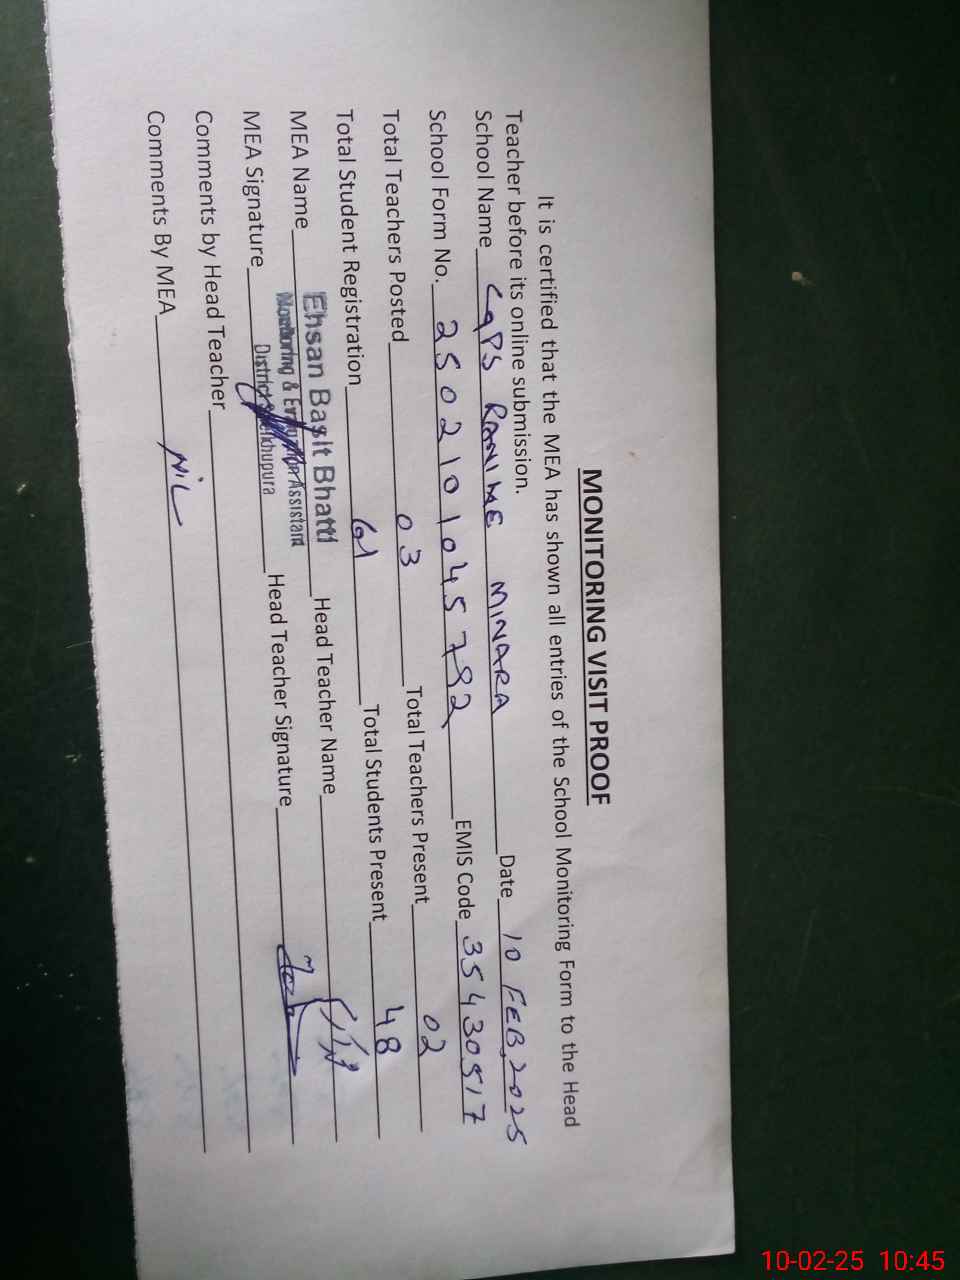 MONITORING VISIT PROOF
It is certified that the MEA has shown all entries of the School Monitoring Form to the Head
Teacher before its online submission.
School Name GPS RANIKE MINARA Date 10 FEB, 2025
School Form No. 2502101045792 EMIS Code 35430517
Total Teachers Posted 03 Total Teachers Present 02
Total Student Registration 61 Total Students Present 48
MEA Name Ehsan Basit Bhatti Head Teacher Name
Monitoring & Evaluation Assistant
District Sheikhupura
MEA Signature Head Teacher Signature
Comments by Head Teacher
Comments By MEA NIL
10-02-25 10:45